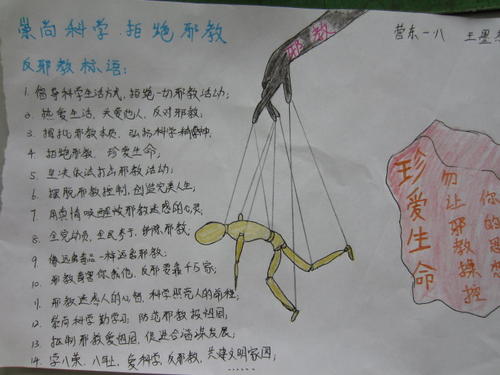 崇尚科学·拒绝邪教
反邪教标语：
1. 倡导科学生活方式，拒绝一切邪教活动；
2. 热爱生活，关爱他人，反对邪教；
3. 揭批邪教本质，弘扬科学精神；
4. 拒绝邪教，珍爱生命；
5. 坚决依法打击邪教活动；
6. 摆脱邪教控制，创造完美人生；
7. 用真情唤醒被邪教迷惑的心灵；
8. 全党动员，全民参与，铲除邪教；
9. 像远离毒品一样远离邪教；
10. 邪教毒害你我他，反邪要靠大家；
11. 邪教迷惑人的心智，科学照亮人的前程；
12. 崇尚科学勤学习，防范邪教报祖国；
13. 抵制邪教爱祖国，促进合谐发展；
14. 学八荣，八耻，爱科学，反邪教，共建文明家园；
……
邪教
营东一八 王墨
珍爱生命
勿让邪教操控
你的思想